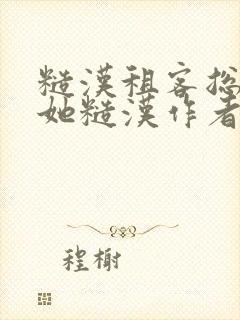 糙漢租客捴
她糙漢作者
程榭